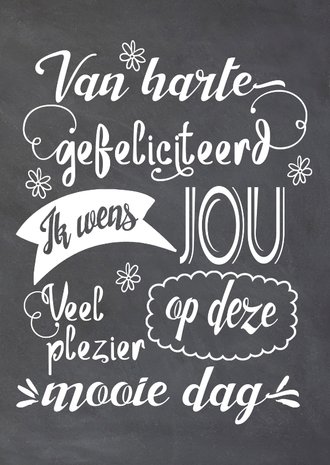 Van harte
gefeliciteerd
Ik wens JOU
Veel op deze
plezier
mooie dag